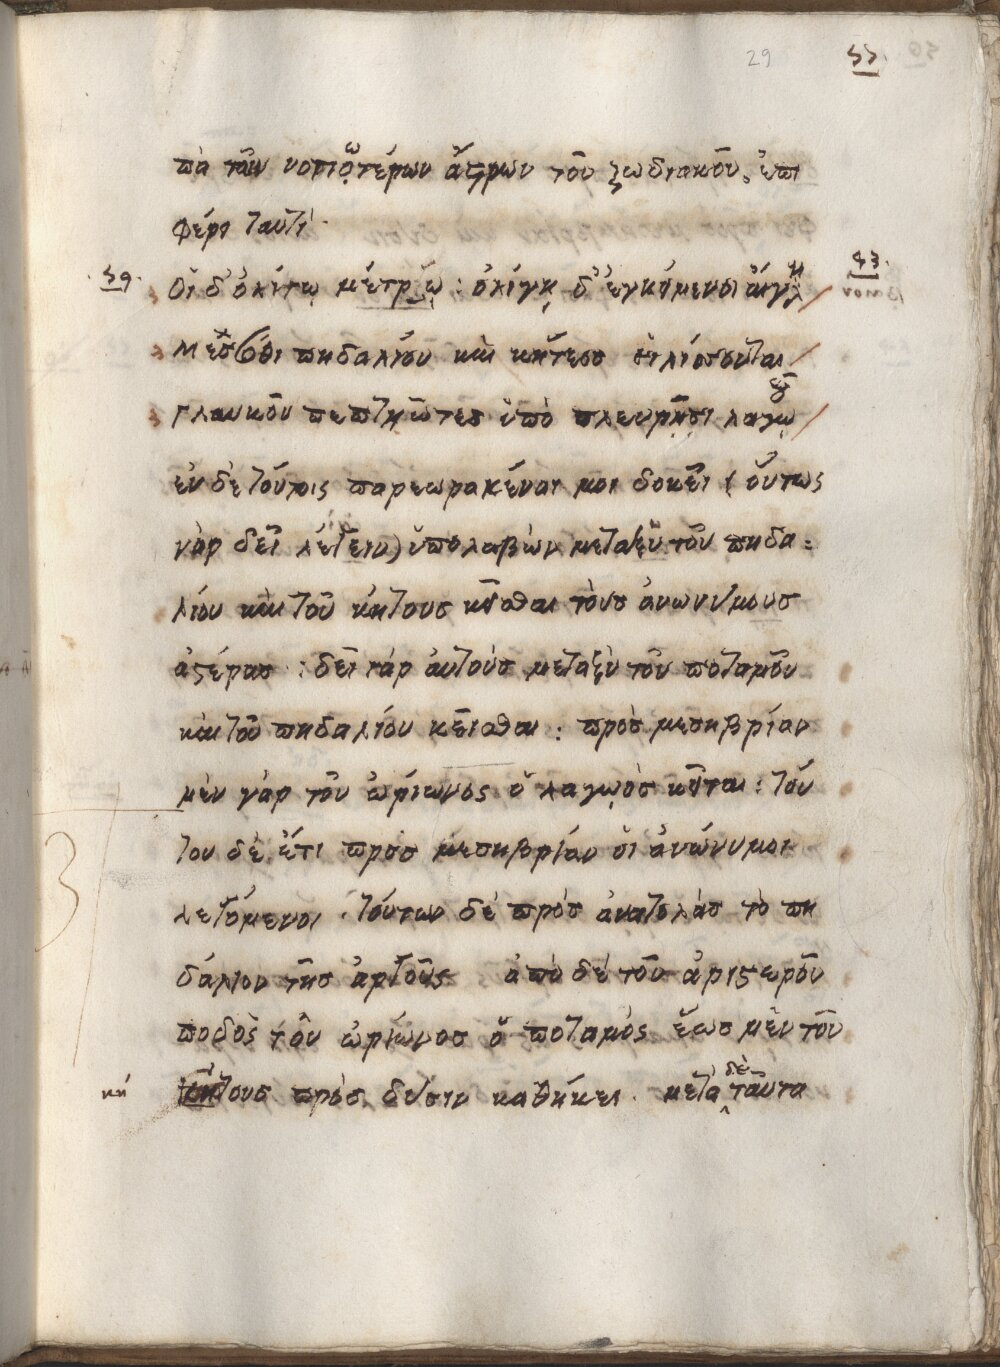 29 55
πὰ τῶν νοτιοτέρων ἄστρων τοῦ ζωδιακοῦ, ἐπι
φέρι ταυτί·
59. Οἱ δ' ὀλίγῳ μέτρῳ: ὀλίγῃ δ' ἐγκείμενοι αἴγλῃ 43.
μεσόθι πηδαλίου καὶ κήτεοσ εἱλίσσονται
γλαυκοῦ πεπτηῶτες ὑπὸ πλευρῇσι λαγωοῦ
ἐν δὲ τούτοις παρεωρακέναι μοι δοκεῖ (οὕτως
γὰρ δεῖ λέγειν) ὑπολαβὼν μεταξὺ τοῦ πηδα:
λίου καὶ τοῦ κήτους κεῖσθαι τοὺσ ἀνωνύμουσ
ἀστέρασ: δεῖ γάρ αὐτοὺσ μεταξὺ τοῦ ποταμοῦ
καὶ τοῦ πηδαλίου κεῖσθαι: πρὸσ μεσημβρίαν
μὲν γάρ τοῦ ὠρίωνος ὁ λαγωὸσ κεῖται: τού
του δὲ ἔτι πρὸσ μεσημβρίαν οἱ ἀνώνυμοι
λεγόμενοι. τούτων δὲ πρὸσ ἀνατολὰσ τὸ πη
δάλιον τῆσ ἀργοῦς ἀπὸ δὲ τοῦ ἀριστεροῦ
ποδὸς τοῦ ὠρίωνοσ ὁ ποταμὸς ἕωσ μὲν τοῦ
κή κήτουσ πρὸσ δύσιν καθήκει. μετὰ δὲ ταῦτα